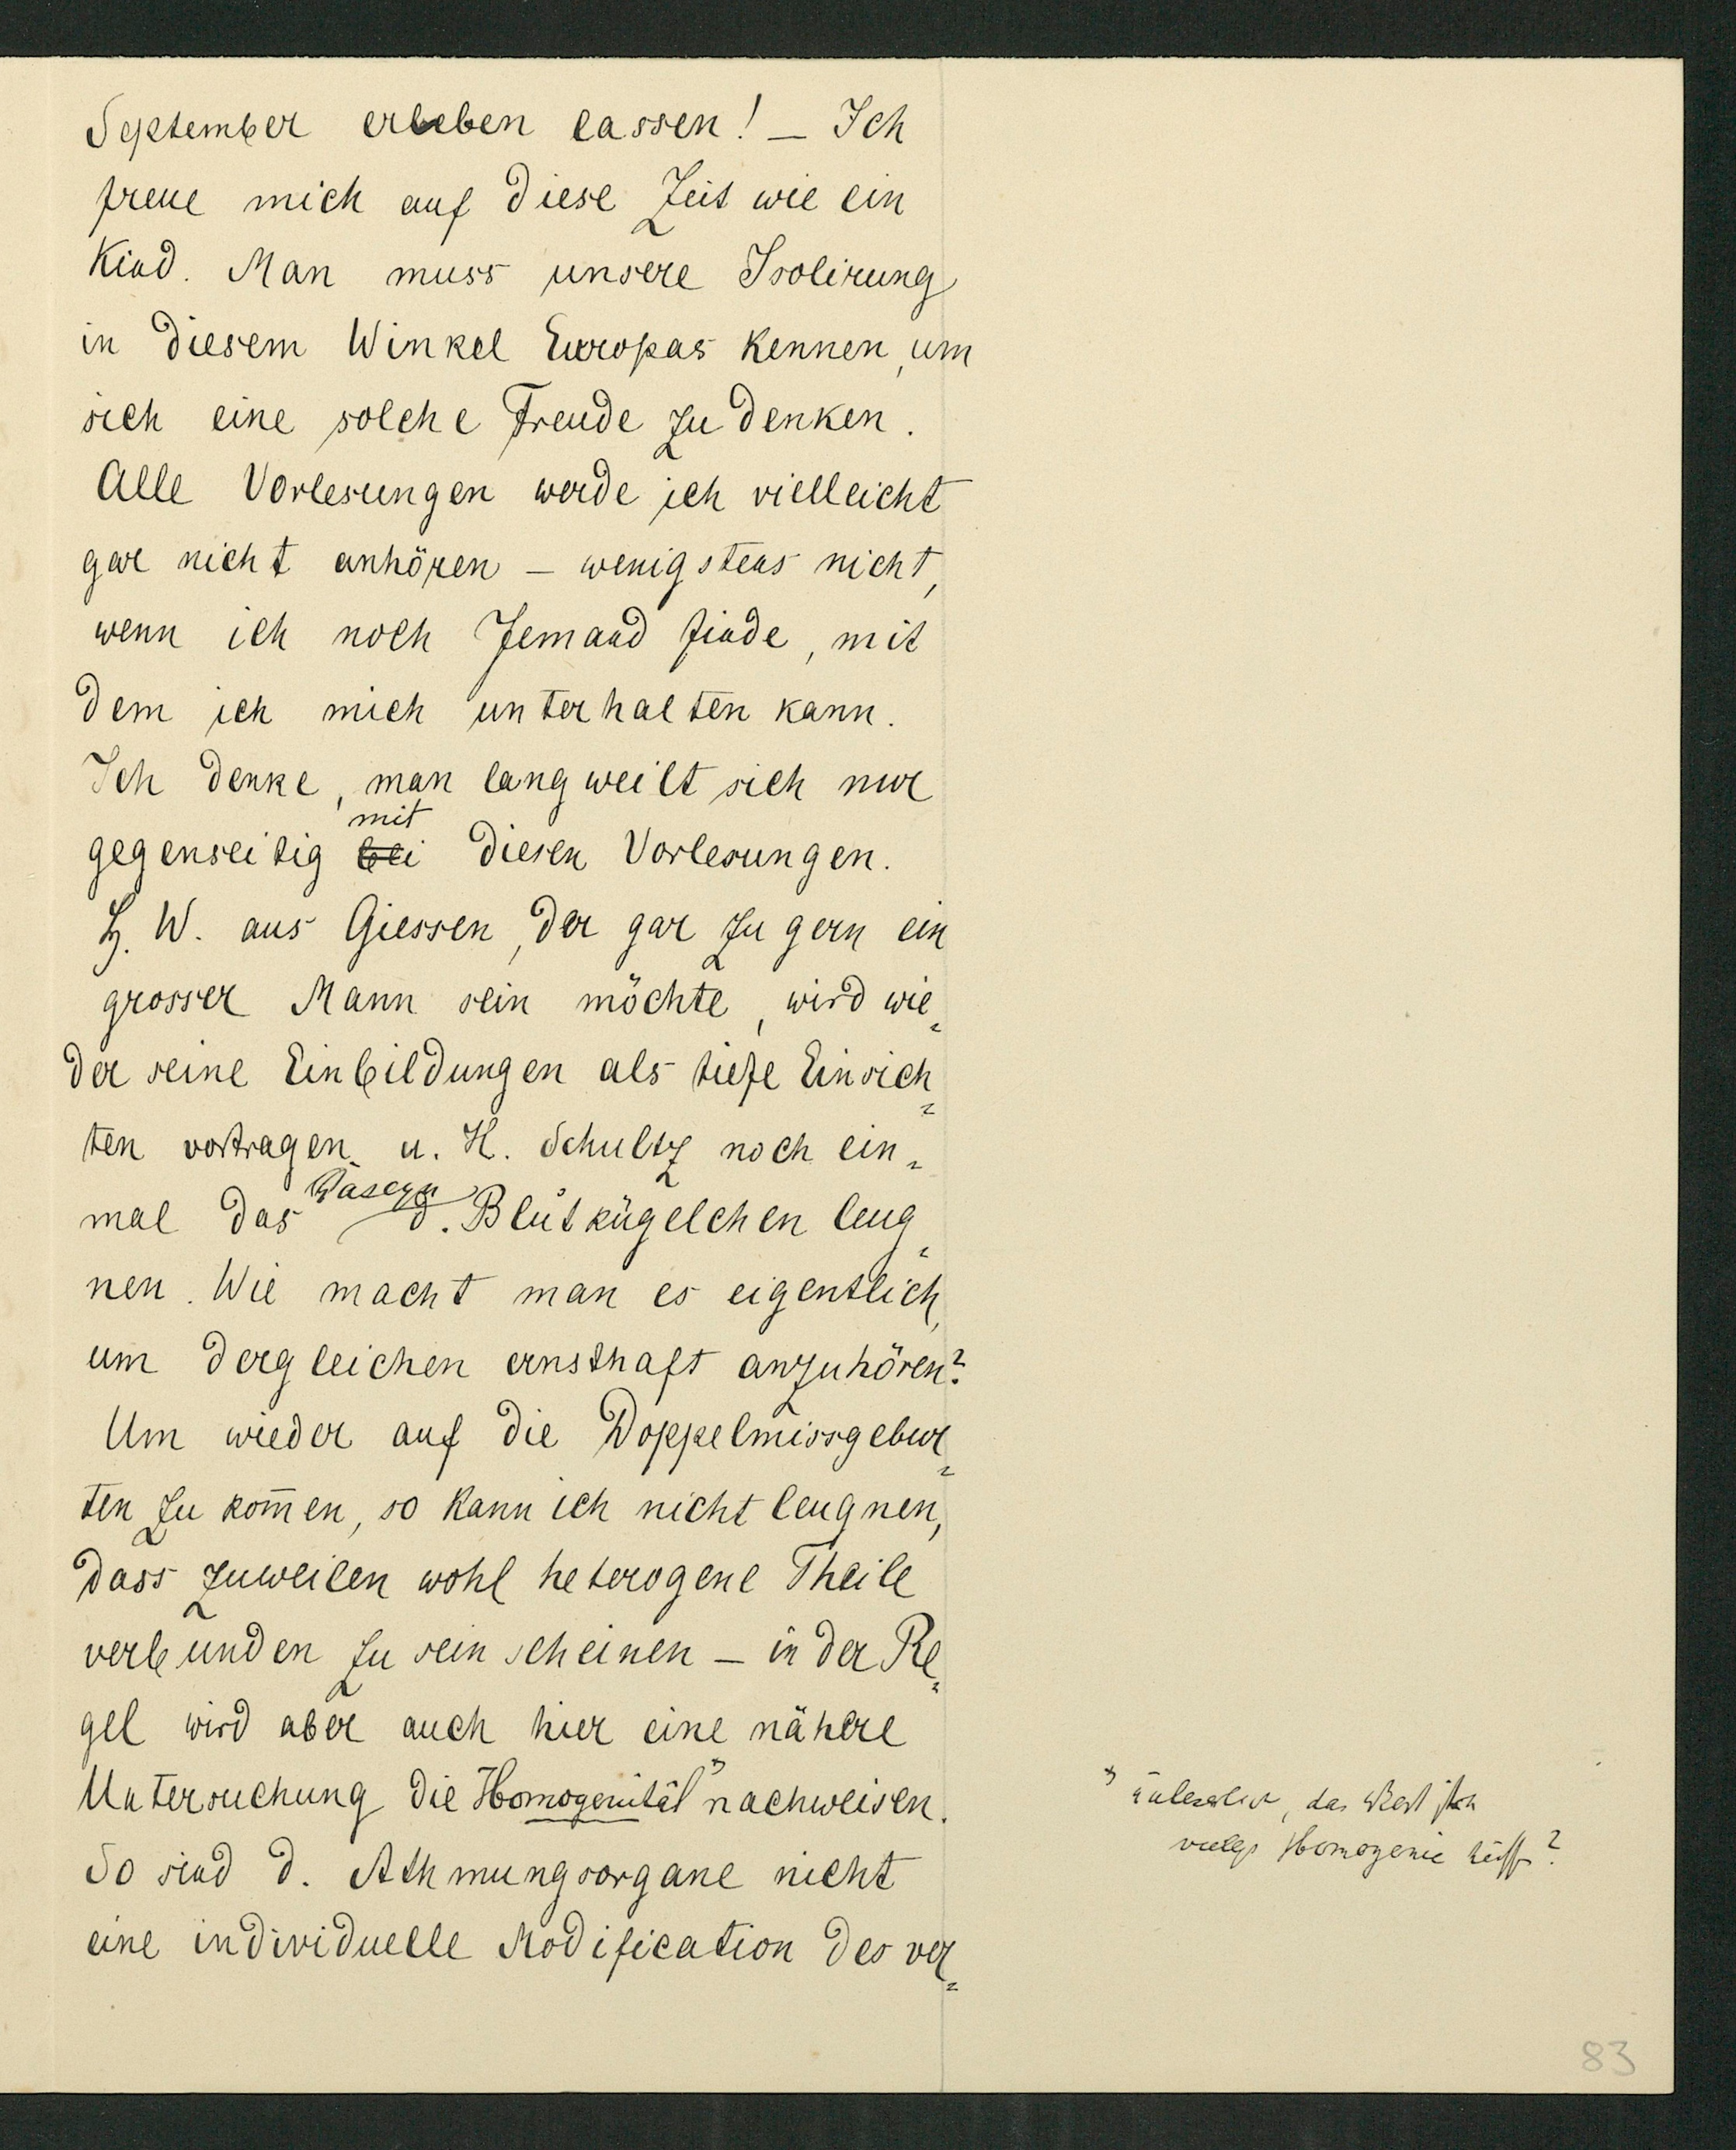 September erleben lassen! – Ich
freue mich auf diese Zeit wie ein
Kind. Man muss unsere Isolirung
in diesem Winkel Europas kennen, um
sich eine solche Freude zu denken.
Alle Vorlesungen werde ich vielleicht
gar nicht anhören – wenigstens nicht,
wenn ich noch Jemand finde, mit
dem ich mich unterhalten kann.
Ich denke, man langweilt sich nur
mit
gegenseitig bei diesen Vorlesungen.
H. W. aus Giessen, der gar zu gern ein
grosser Mann sein möchte, wird wie-
der seine Einbildungen als tiefe Einsich-
ten vortragen u. H. Schultz noch ein-
mal das d. Blutkügelchen leug-
nen. Wie macht man es eigentlich,
um dergleichen ernsthaft anzuhören?
Um wieder auf die Doppelmissgebur-
ten zu kom̄en, so kann ich nicht leugnen,
dass zuweilen wohl heterogene Theile
verbunden zu sein scheinen – in der Re-
gel wird aber auch hier eine nähere
Untersuchung die Homogenität nachweisen.
So sind d. Athmungsorgane nicht
eine individuelle Modification des ver-
das Wort
Homogenie
83